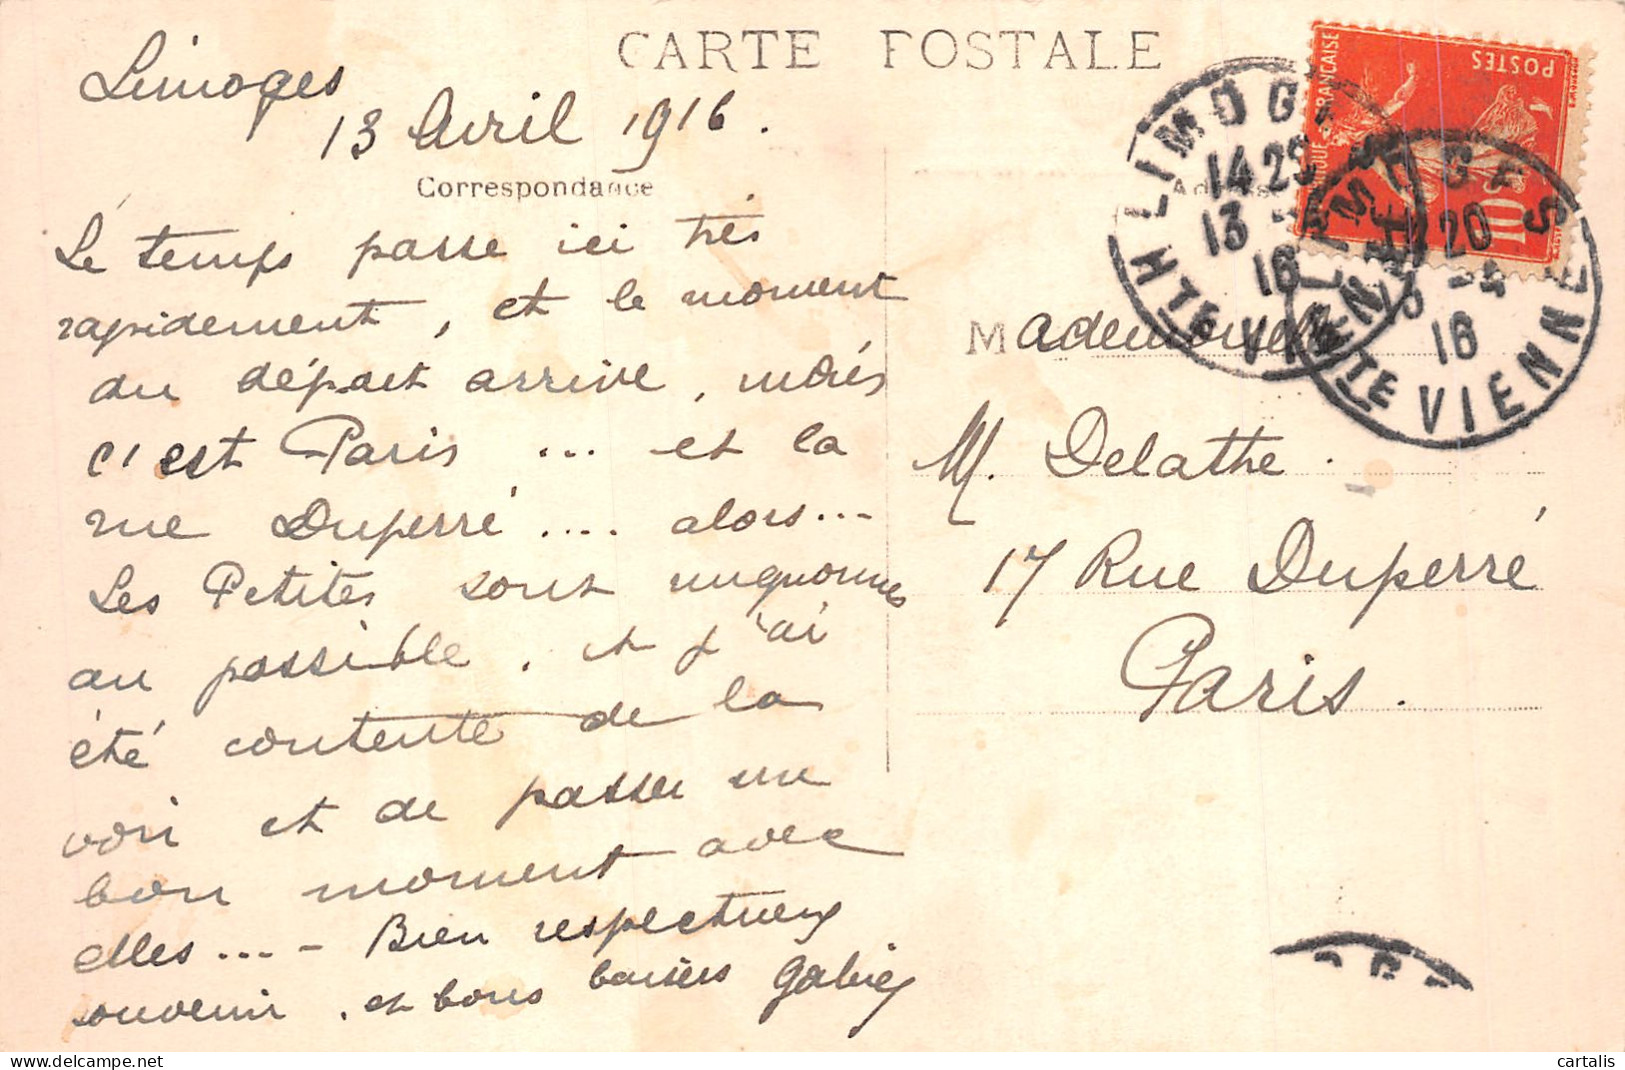 CARTE POSTALE
Limoges
13 Avril 1916.
Correspondance
Le temps passe ici très
rapidement, et le moment
du départ arrive, mais
c'est Paris ... et la
rue Duperré .... alors...
Les Petites sont mignonnes
au possible, et j'ai
été contente de la
voir et de passer un
bon moment avec
elles... - Bien respectueux
souvenir, et bons baisers
POSTES
10
LIMOGES
14 25
13 -
16
HTE VIENNE
LIMOGES
20
16
HTE VIENNE
Mademoiselle
M. Delathe.
17 Rue Duperré
Paris.
cartalis